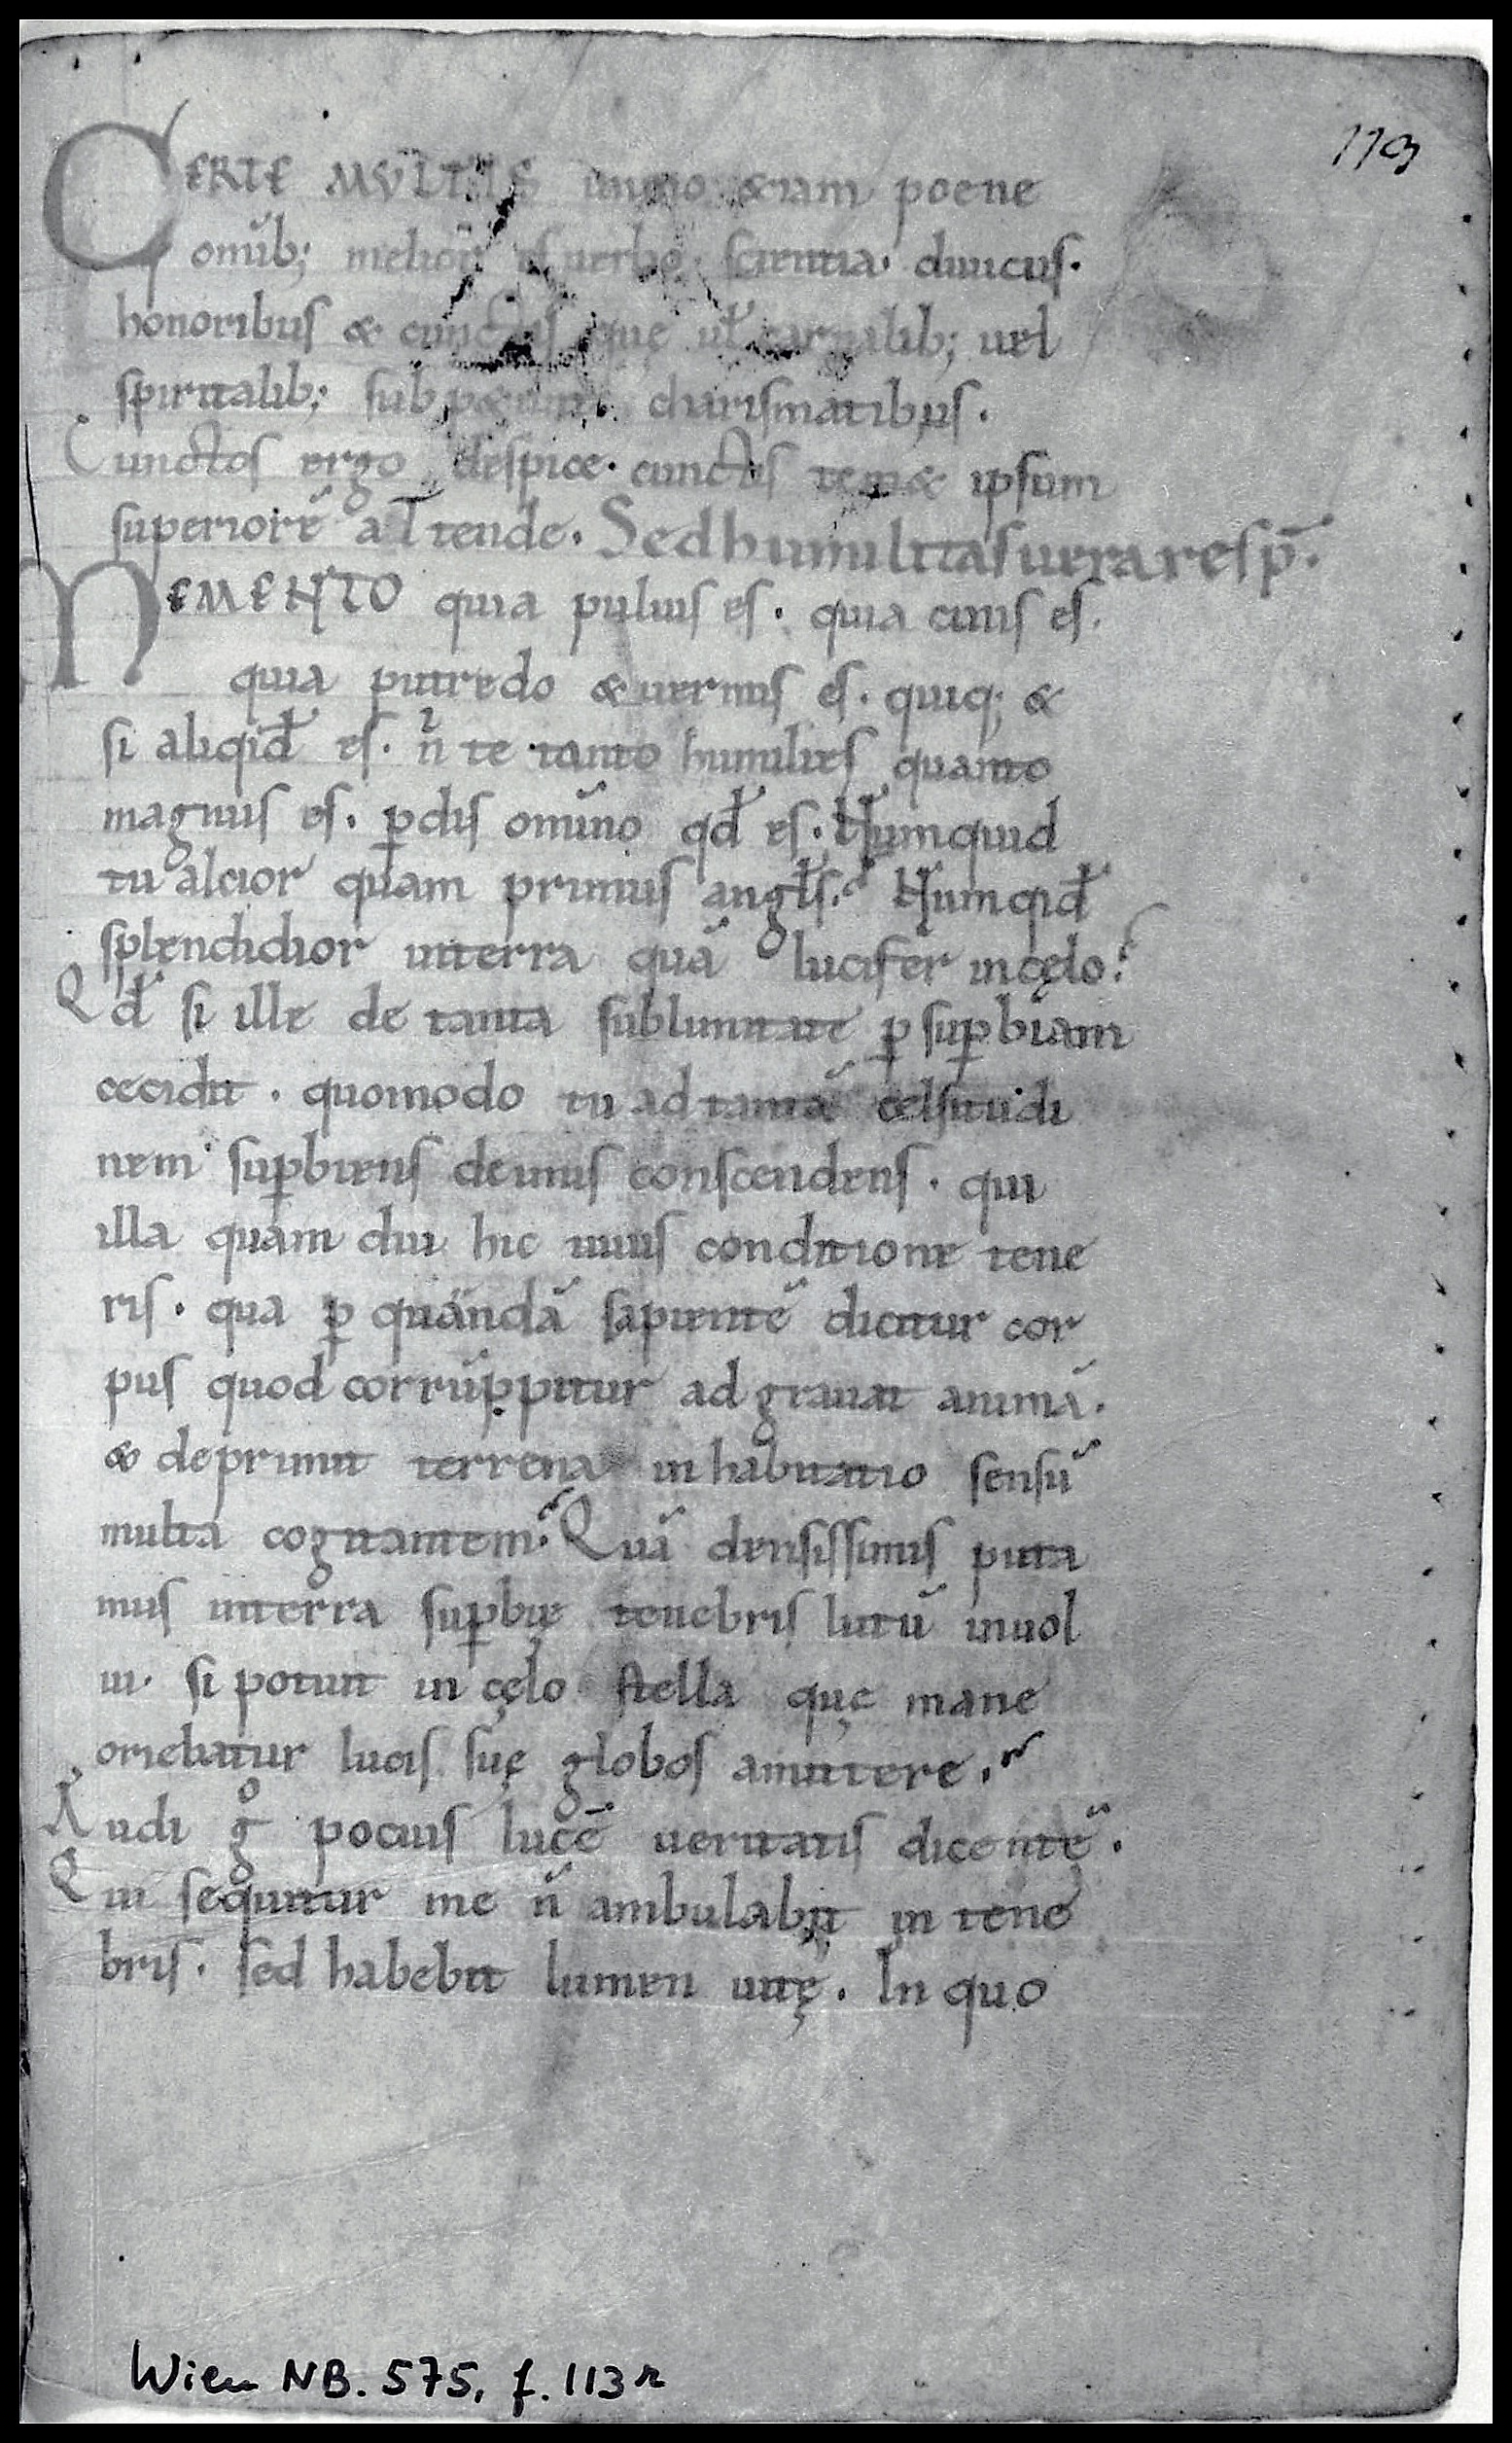 113
CERTE MVLTIS immo &iam poene
omĩb; melior es uerbo. scientia. diuiciis.
honoribus & cunctis quę uł carnalib; uel
spiritalib; subpetunt charismatibus.
Cunctos ergo despice. cunctis tem& ipsum
superiorē attende. Sed humilitas uera resp̄.
MEMENTO quia puluis es. quia cinis es.
quia putredo & uermis es. quiq; &
si aliqid̄ es. n̄ te tanto humilies quanto
magnus es. ꝑdis omĩno qđ es. Numquid
tu alcior quam primus angłs? Numqid̄
splendidior interra quā lucifer incęlo?
Qđ si ille de tanta sublimitate ꝑ suꝑbiam
cecidit. quomodo tu ad tantā celsitudi
nem suꝑbiens de imis conscendens. qui
illa quam diu hic uiuis conditione tene
ris. qua ꝑ quandā sapientē dicitur cor
pus quod corrūppitur ad grauat animā.
& deprimit terrena inhabitatio sensū
multa cogitantem? Quā densissimis puta
mus interra suꝑbię tenebris lutū inuol
ui. si potuit in cęlo stella quę mane
oriebatur lucis suę globos amittere?
Audi gͦ pocius lucē ueritatis dicentē.
Qui sequitur me n̄ ambulabit in tene
bris. sed habebit lumen uitę. In quo
Wien NB. 575, f. 113r